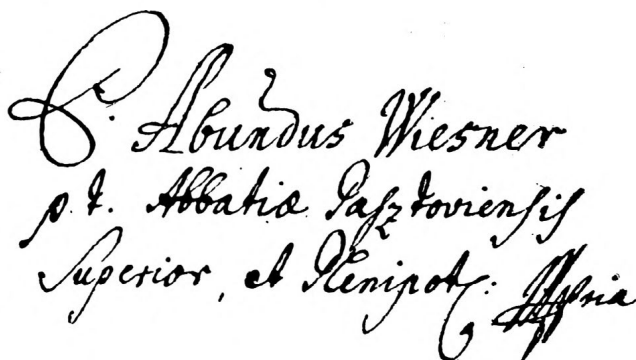 P. Abundus Wiesner
p. t. Abbatiæ Paſztovienſiſ
Superior, et Plenipot: